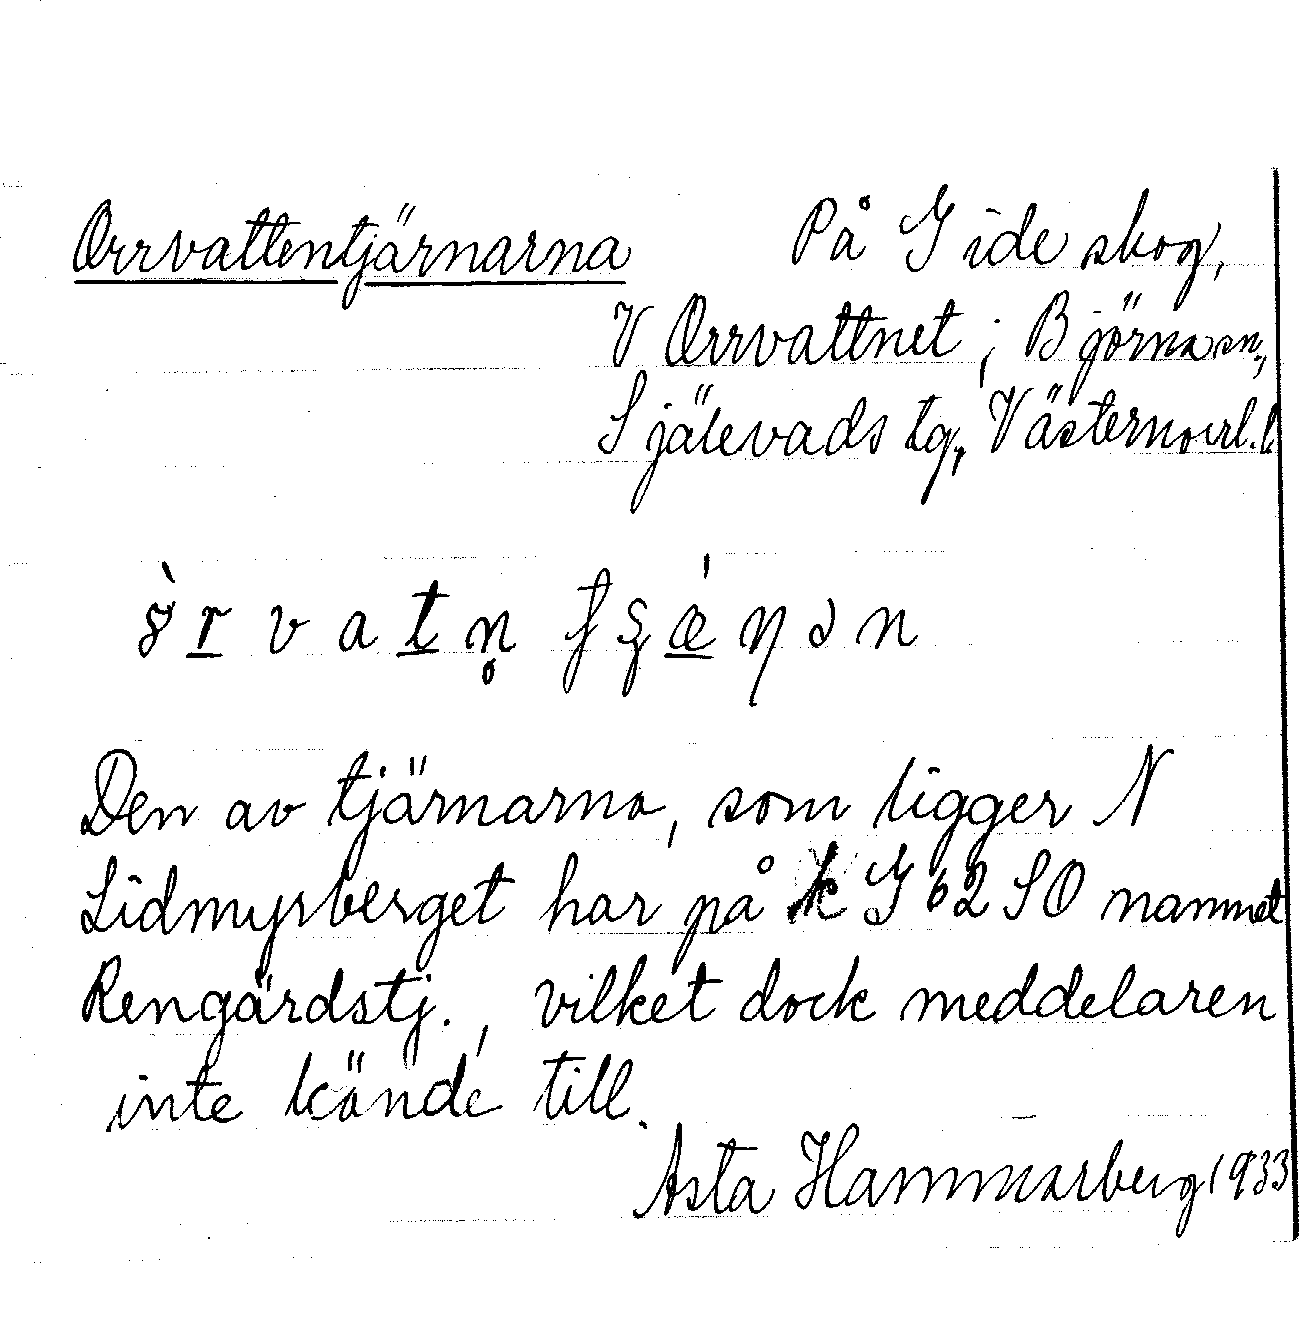 Orrvattentjärnarna På Gideskog,
V Orrvattnet; Björna sn,
Själevads tg, Västernorrl. l.
Den av tjärnarna, som ligger N
Lidmyrberget har på k G 62 SO namnet
Rengårdstj., vilket dock meddelaren
inte kände till.
Asta Hammarberg 1933